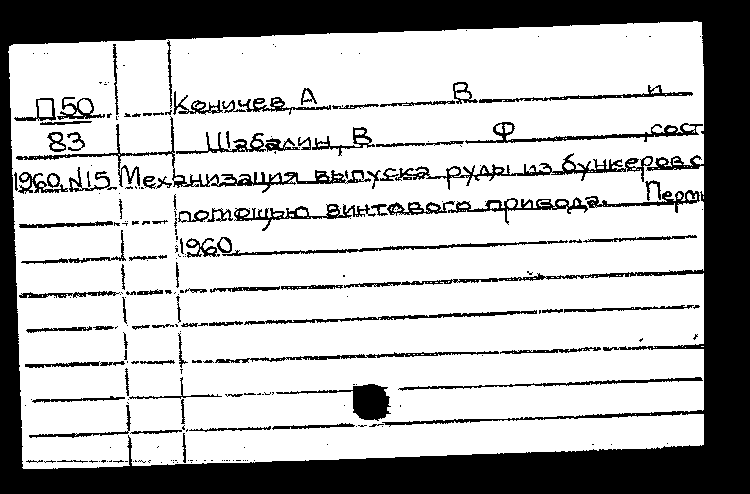 П50 Коничев, А В и
83 Шабалин, В Ф , сост.
1960, N15 Механизация выпуска руды из бункеров с
помощью винтового привода. Пермь
1960.